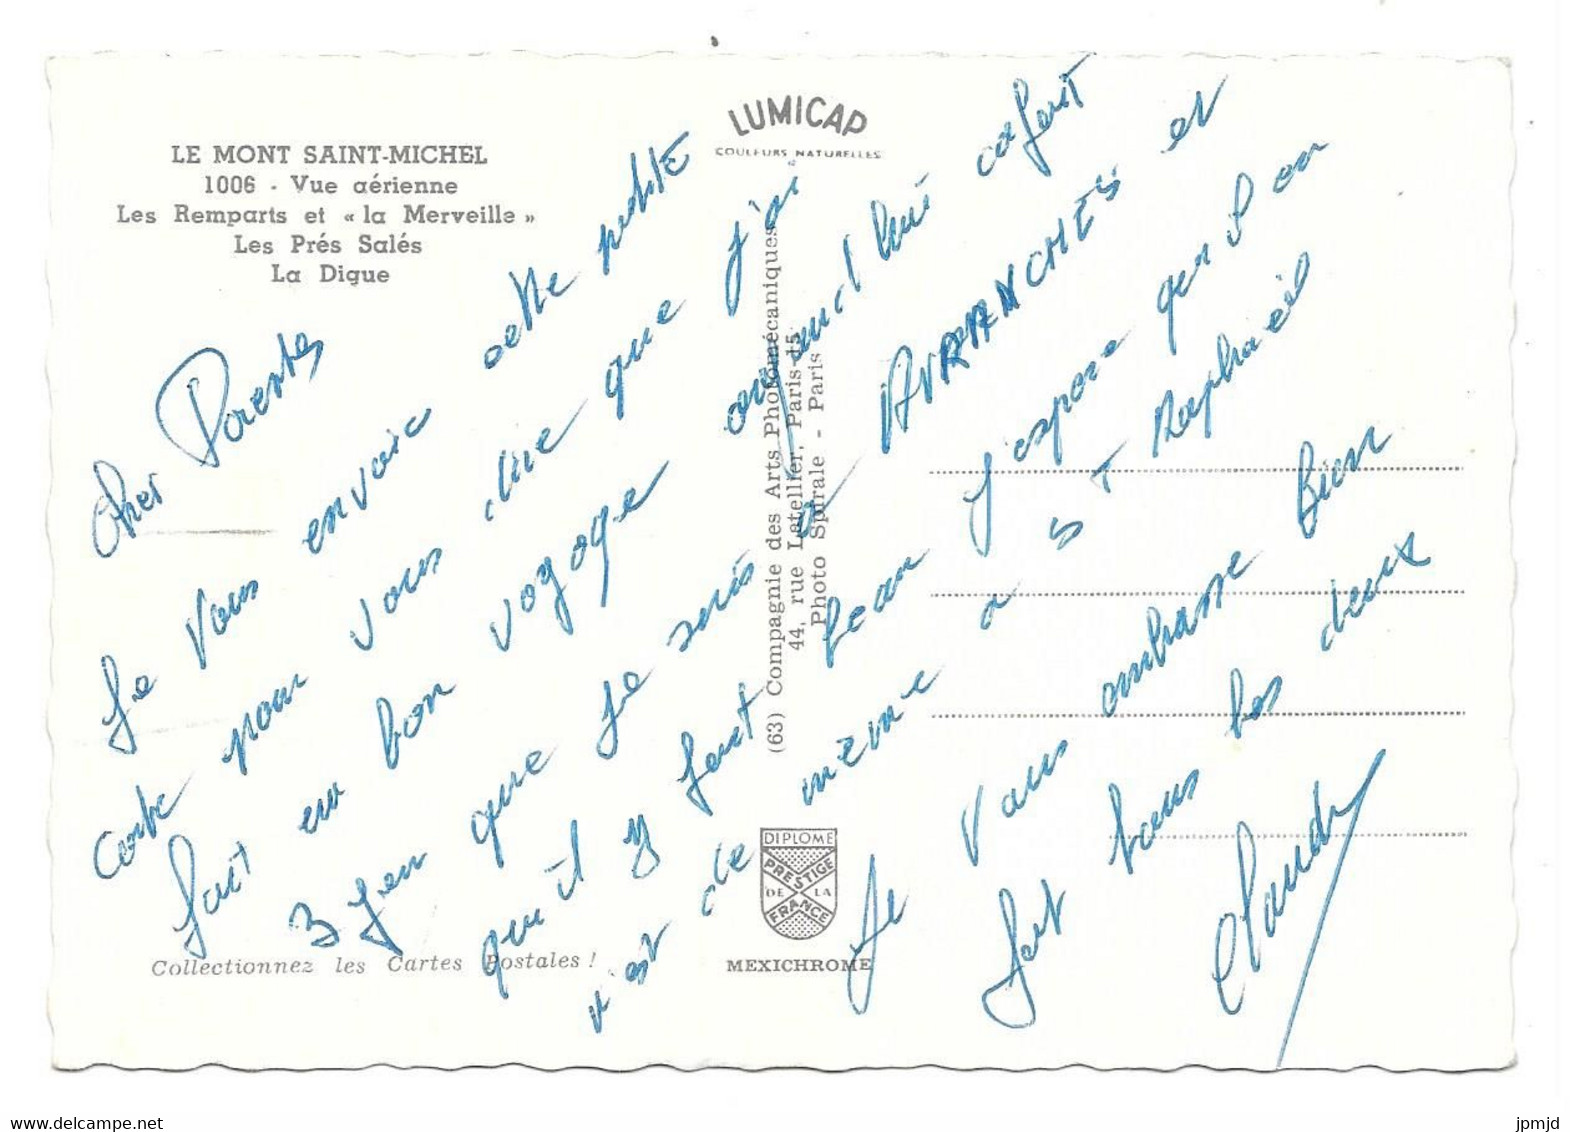 LE MONT SAINT-MICHEL
1006 - Vue aérienne
Les Remparts et « la Merveille »
Les Prés Salés
La Digue
LUMICAP
COULEURS NATURELLES
Cher Parents
Je vous envoie cette petite
carte pour vous dire que j'ai
fait un bon voyage aujourd'hui
que je suis a AVRANCHES et
qu'il y fait beau J'espere que l'on
est de même a ST Raphaël
Je vous embrasse Bien
fort tous les deux
Claude
(63) Compagnie des Arts Photomécaniques
44, rue Letellier, Paris-15
Photo Spirale - Paris
DIPLOME
PRESTIGE
DE LA
FRANCE
MEXICHROME
Collectionnez les Cartes Postales !
jpmjd